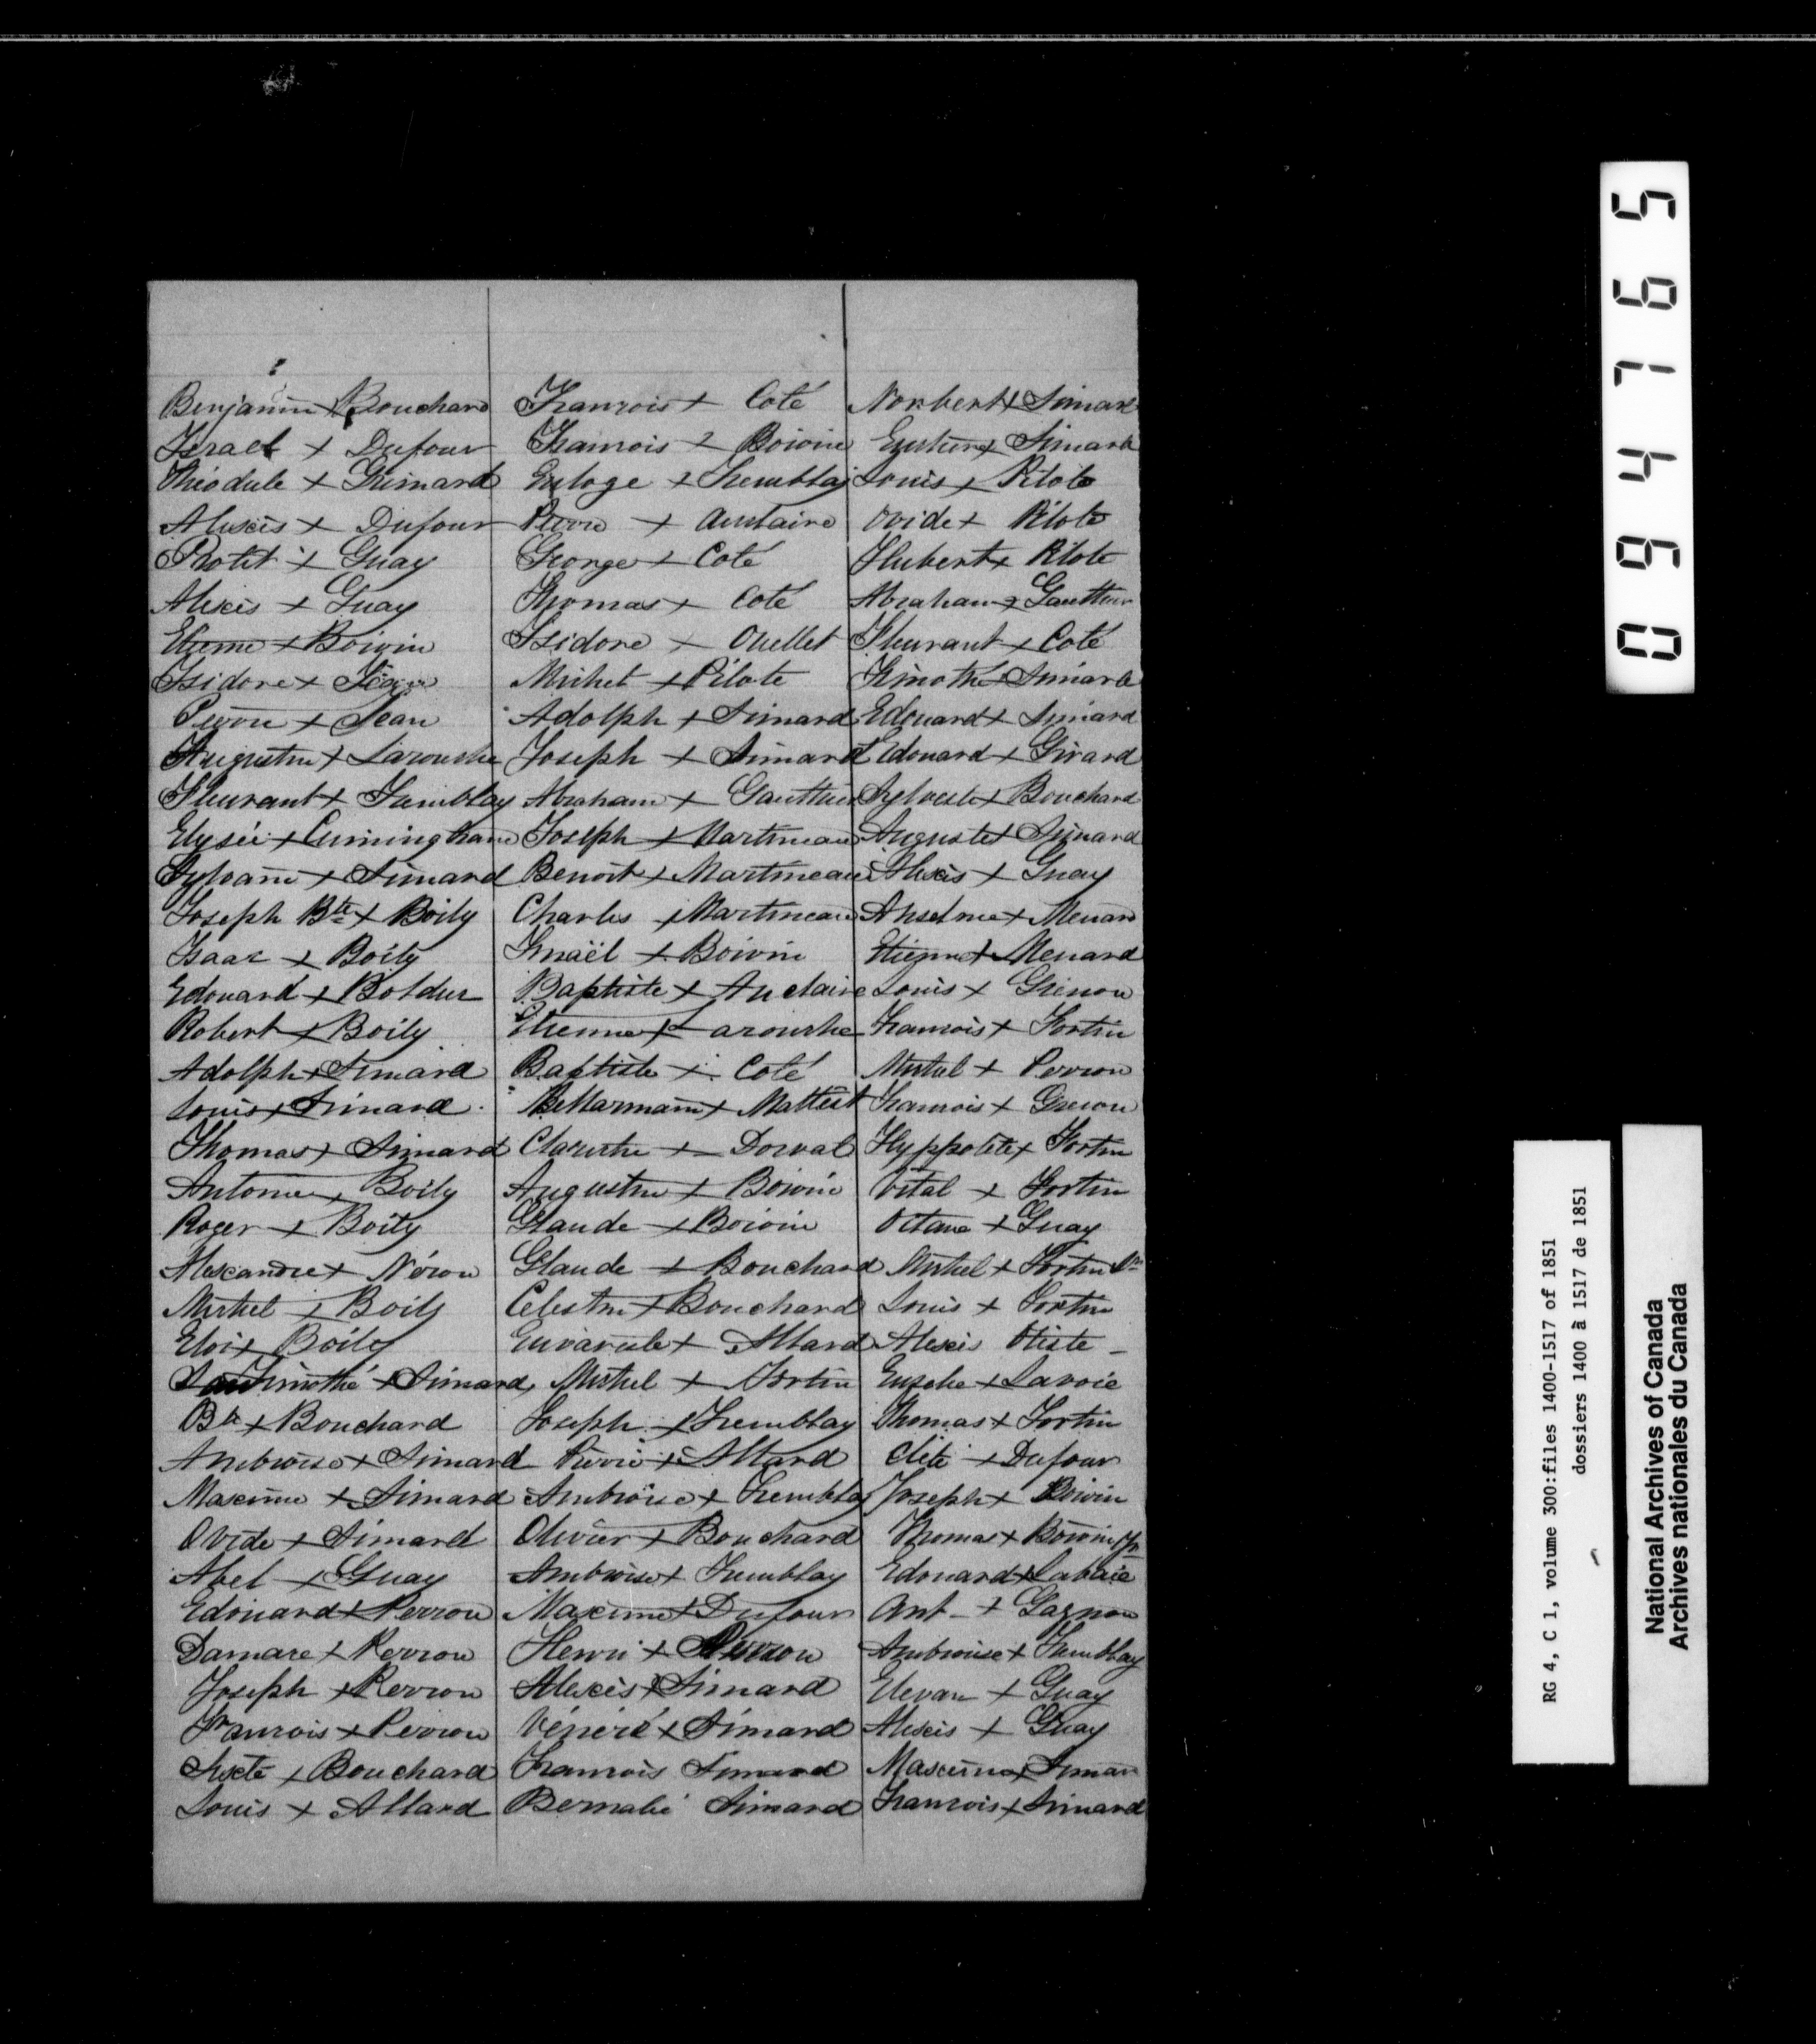 Benjamin + Bouchard
Israel + Dufour
Théodule + Grimard
Alexis + Dufour
Petit + Guay
Alexis + Guay
Etienne + Boivin
Isidore + Jean
Pierre + Jean
Augustin + Larouche
Fleurant + Tremblay
Elysée + Cunningham
Sylvain + Simard
Joseph Bte + Boily
Isaac + Boily
Edouard + Bolduc
Robert + Boily
Adolph + Simard
Louis + Simard
Thomas + Simard
Antoine + Boily
Roger + Boily
Alexandre + Néron
Michel + Boily
Eloi + Boily
Timothé + Simard
Bte + Bouchard
Ambroise + Simard
Maxime + Simard
Ovide + Simard
Abel + Guay
Edouard + Perron
Damase + Perron
Joseph + Perron
François + Perron
Sixte + Bouchard
Louis + Allard
François + Coté
François + Boivin
Euloge + Tremblay
Pierre + Auclaire
George + Coté
Thomas + Coté
Isidore + Ouellet
Michel + Pilote
Adolph + Simard
Joseph + Simard
Abraham + Gauthier
Joseph + Martineau
Benoit + Martineau
Charles + Martineau
Ismaël + Boivin
Baptiste + Auclaire
Etienne + Larouche
Baptiste + Coté
Bellarmain + Maltest
+ Dorval
Augustin + Boivin
Glaude + Boivin
Glaude + Bouchard
Celestin + Bouchard
+ Allard
Michel + Fortin
Joseph + Tremblay
Pierre + Allard
Ambroise + Tremblay
Olivier + Bouchard
Ambroise + Tremblay
Maxime + Dufour
Henri + Perron
Alexis + Simard
Vénéré + Simard
François Simard
Bernabé Simard
Norbert + Simard
+ Simard
Louis + Pilote
Ovide + Pilote
Hubert + Pilote
Abraham + Gauthier
Fleurant + Coté
Timothé + Simard
Edouard + Simard
Edouard + Girard
Sylveste + Bouchard
Auguste + Simard
Alexis + Guay
Anselme + Menard
Etienne + Menard
Louis + Grenon
François + Fortin
Michel + Perron
François + Grenon
Hyppolite + Fortin
Vital + Fortin
Octave + Guay
Michel + Fortin
Louis + Fortin
Alexis Otiste
Eusebe + Lavoie
Thomas + Fortin
Cléte + Dufour
Joseph + Boivin
Thomas + Boivin Jr
Edouard + Labaie
Ant + Gagnon
Ambroise + Tremblay
+ Guay
Alexis + Guay
Maxime + Simard
François + Simard
094765
RG 4, C 1, volume 300:files 1400-1517 of 1851
dossiers 1400 à 1517 de 1851
National Archives of Canada
Archives nationales du Canada